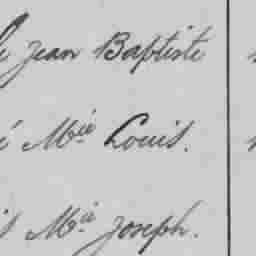 Jean Baptiste
é Mie Louis.
Mie Joseph.